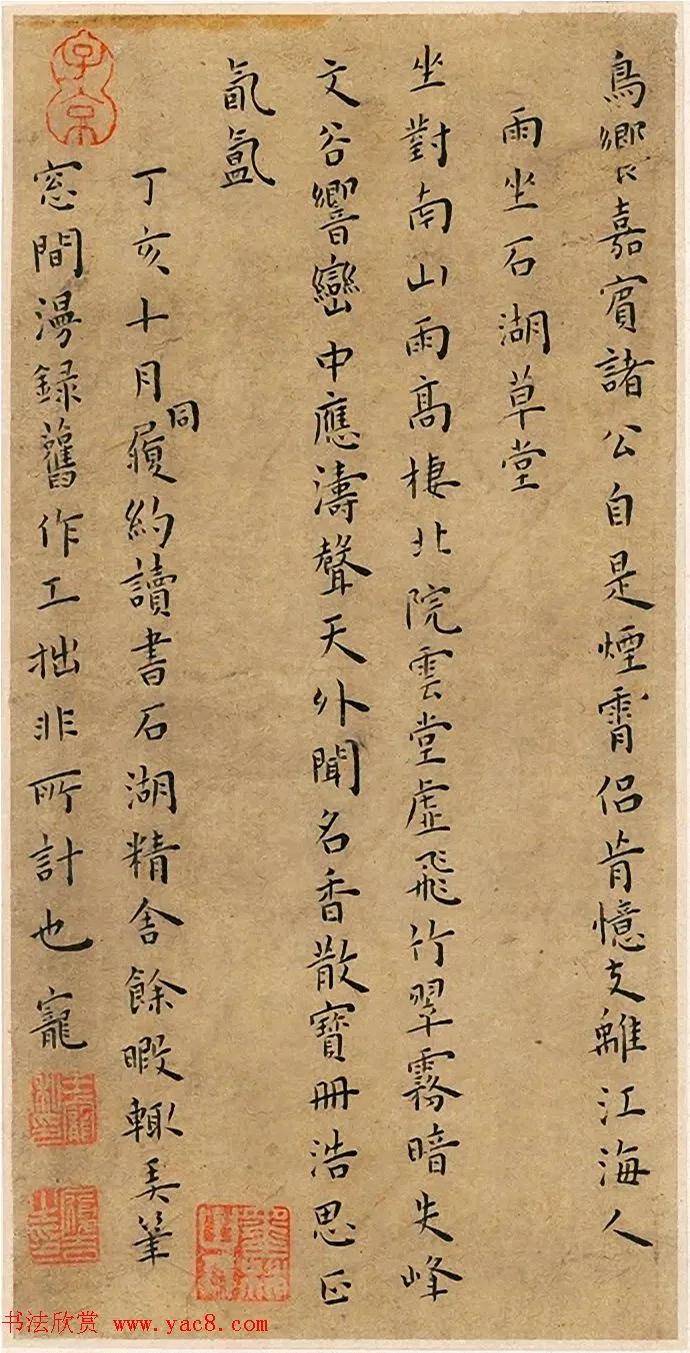 鳥鄉嘉賓諸公自是煙霄侶肯憶支離江海人
雨坐石湖草堂
坐對南山雨高棲北院雲堂虛飛竹翠霧暗失峰
文谷響巒中應濤聲天外聞名香散寶冊浩思正
氤氳
丁亥十月同履約讀書石湖精舍餘暇輒弄筆
窓間漫録舊作工拙非所計也寵
子京
书法欣赏 www.yac8.com